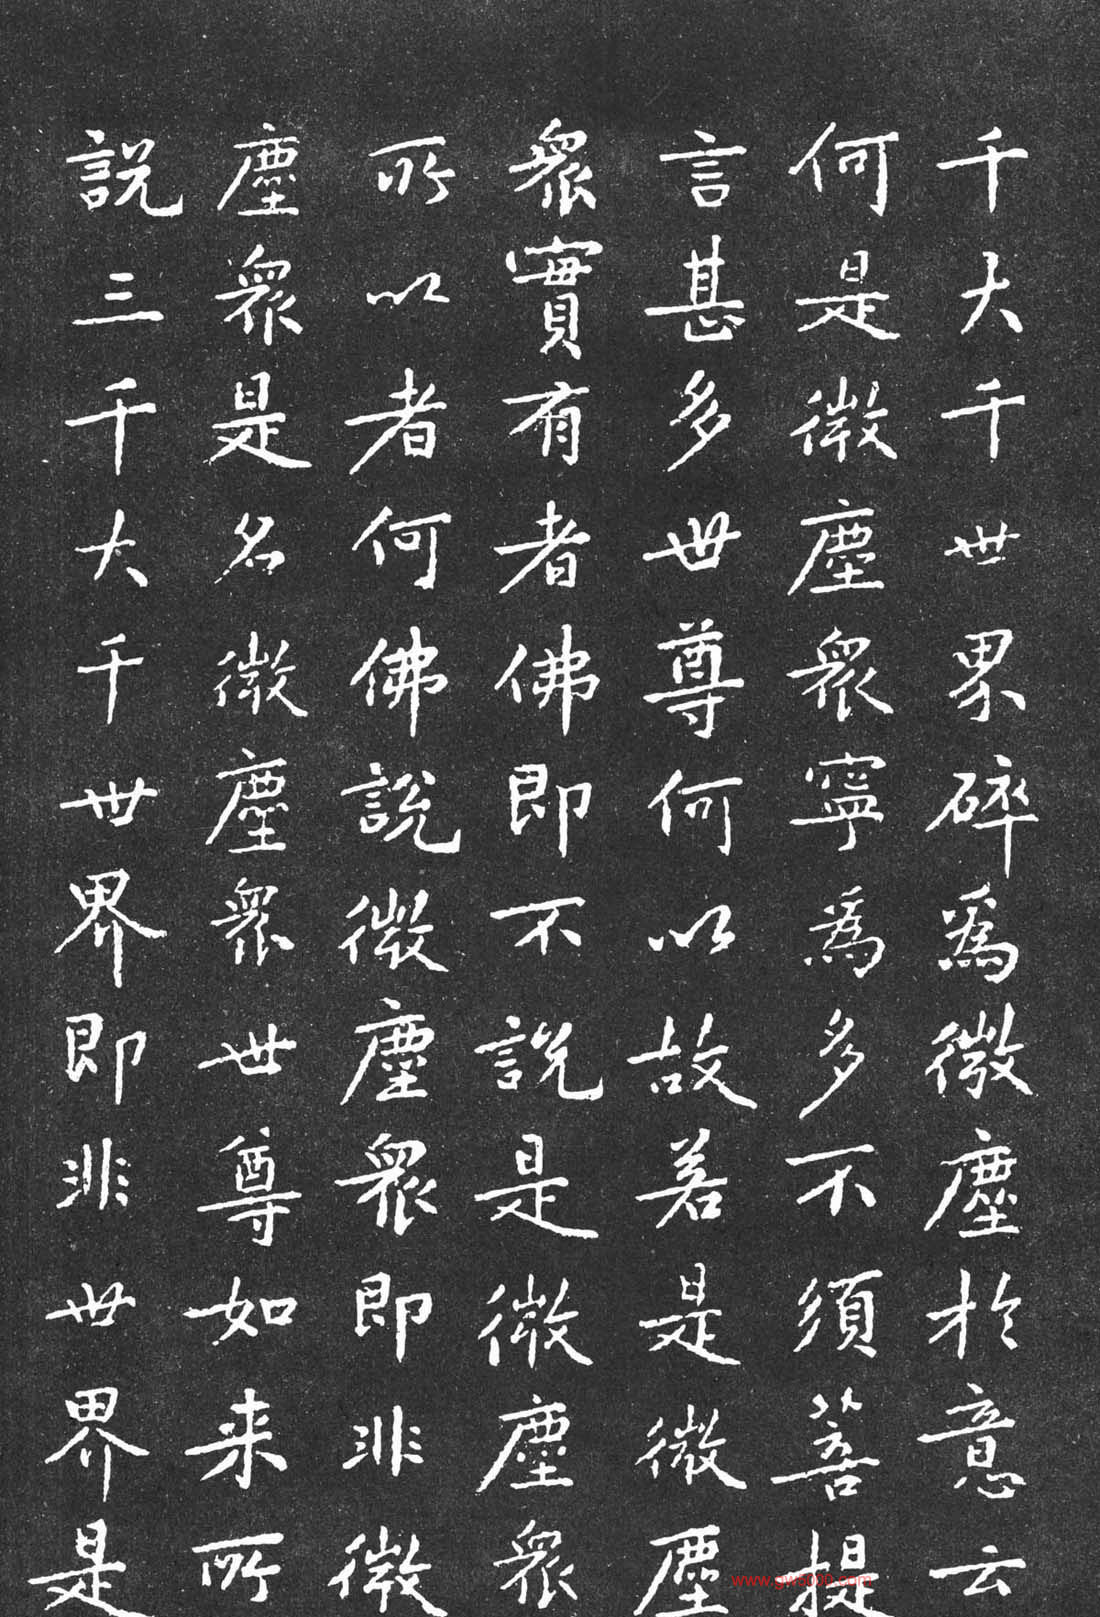 千大千世界碎為微塵於意云
何是微塵眾寧為多不須菩提
言甚多世尊何以故若是微塵
眾實有者佛即不說是微塵眾
所以者何佛說微塵眾即非微
塵眾是名微塵眾世尊如来所
說三千大千世界即非世界是
www.gw5000.com